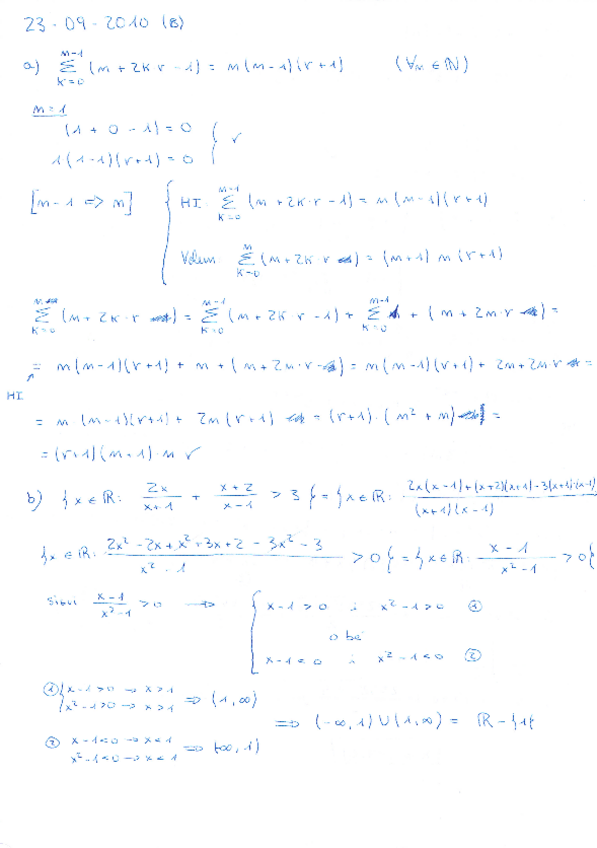 23-09-2010 (B)
a) Σ_{k=0}^{n-1} (n + 2k·r - 1) = n(n-1)(r+1) (∀n ∈ ℕ)
n=1
(1 + 0 - 1) = 0
1(1-1)(r+1) = 0 } ✓
[n-1 => n] { HI: Σ_{k=0}^{n-1} (n + 2k·r - 1) = n(n-1)(r+1)
Volem: Σ_{k=0}^{n} (n + 2k·r) = (n+1) n (r+1)
Σ_{k=0}^{n} (n + 2k·r) = Σ_{k=0}^{n-1} (n + 2k·r - 1) + Σ_{k=0}^{n-1} 1 + (n + 2n·r) =
= n(n-1)(r+1) + n + (n + 2n·r) = n(n-1)(r+1) + 2n + 2nr =
HI
= n (n-1)(r+1) + 2n(r+1) = (r+1)·(n² + n) =
= (r+1)(n+1)·n ✓
b) {x ∈ ℝ: 2x/(x+1) + (x+2)/(x-1) > 3} = {x ∈ ℝ: (2x(x-1)+(x+2)(x+1)-3(x+1)·(x-1))/((x+1)(x-1))
{x ∈ ℝ: (2x² - 2x + x² + 3x + 2 - 3x² - 3)/(x² - 1) > 0} = {x ∈ ℝ: (x-1)/(x²-1) > 0}
(x-1)/(x²-1) > 0 → { x-1 > 0 i x²-1 > 0 ①
o bé
x-1 < 0 i x²-1 < 0 ②
① { x-1>0 → x>1
x²-1>0 → x>1 => (1,∞)
=> (-∞,1) ∪ (1,∞) = ℝ - {1}
② x-1<0 → x<1
x²-1<0 → x<1 => (-∞,1)